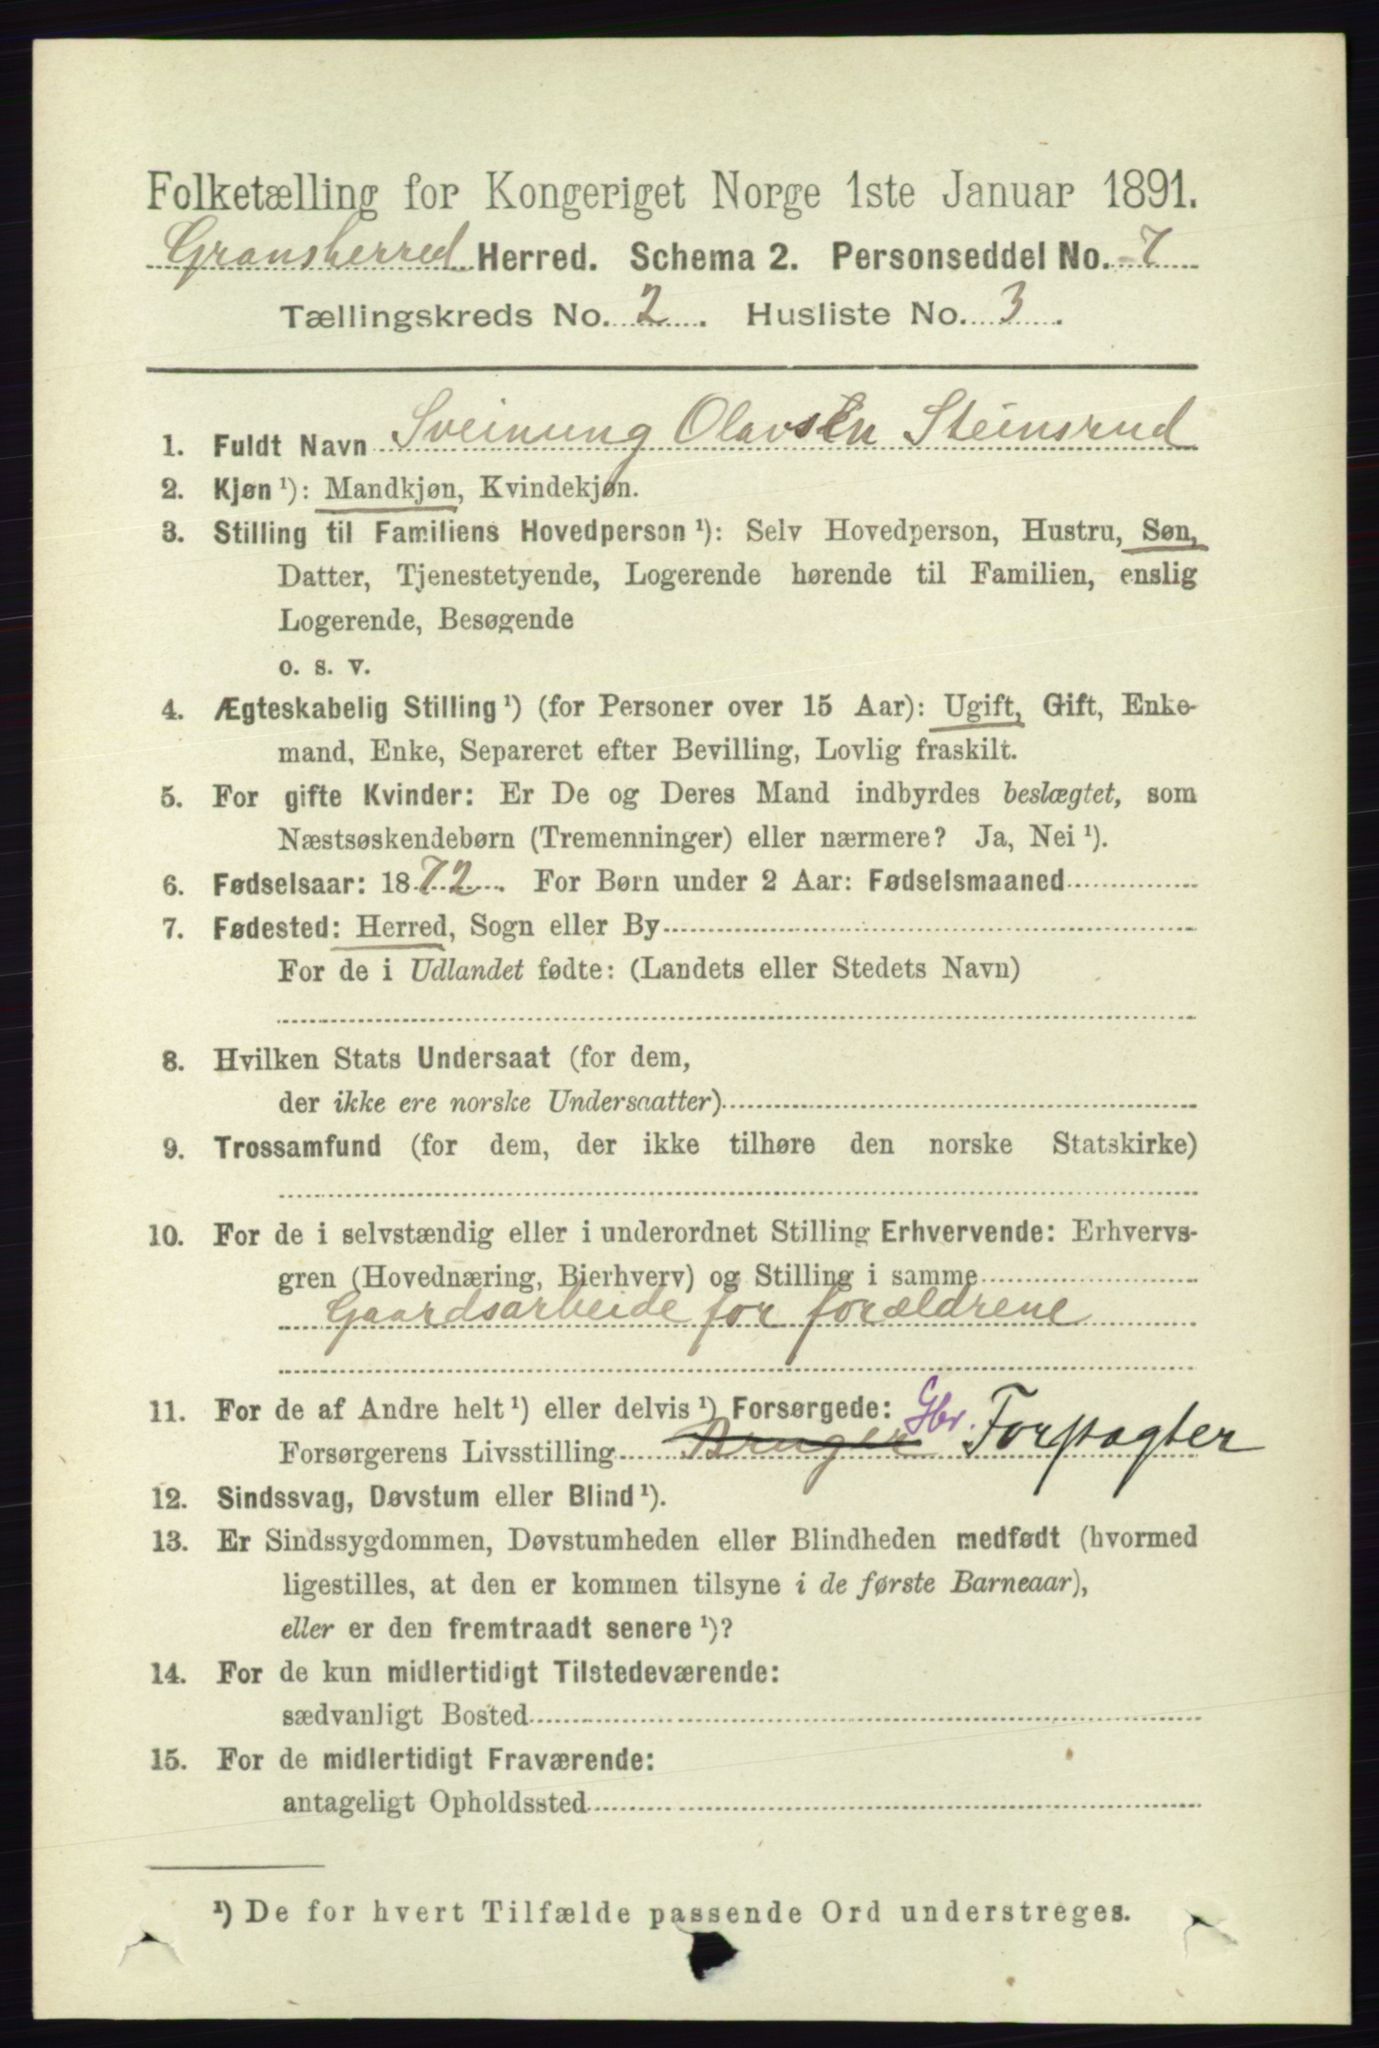 Folketælling for Kongeriget Norge 1ste Januar 1891.
Gransherred Herred. Schema 2. Personseddel No. 7
Tællingskreds No. 2. Husliste No. 3.
1. Fuldt Navn Sveinung Olavsen Steinsrud
2. Kjøn ¹): Mandkjøn, Kvindekjøn.
3. Stilling til Familiens Hovedperson ¹): Selv Hovedperson, Hustru, Søn,
Datter, Tjenestetyende, Logerende hørende til Familien, enslig
Logerende, Besøgende
o. s. v.
4. Ægteskabelig Stilling ¹) (for Personer over 15 Aar): Ugift, Gift, Enke-
mand, Enke, Separeret efter Bevilling, Lovlig fraskilt.
5. For gifte Kvinder: Er De og Deres Mand indbyrdes beslægtet, som
Næstsøskendebørn (Tremenninger) eller nærmere? Ja, Nei ¹).
6. Fødselsaar: 1872. For Børn under 2 Aar: Fødselsmaaned
7. Fødested: Herred, Sogn eller By
For de i Udlandet fødte: (Landets eller Stedets Navn)
8. Hvilken Stats Undersaat (for dem,
der ikke ere norske Undersaatter)
9. Trossamfund (for dem, der ikke tilhøre den norske Statskirke)
10. For de i selvstændig eller i underordnet Stilling Erhvervende: Erhvervs-
gren (Hovednæring, Bierhverv) og Stilling i samme
Gaardsarbeide for forældrene
11. For de af Andre helt ¹) eller delvis ¹) Forsørgede:
Forsørgerens Livsstilling Bruger Gbr. Forpagter
12. Sindssvag, Døvstum eller Blind ¹).
13. Er Sindssygdommen, Døvstumheden eller Blindheden medfødt (hvormed
ligestilles, at den er kommen tilsyne i de første Barneaar),
eller er den fremtraadt senere ¹)?
14. For de kun midlertidigt Tilstedeværende:
sædvanligt Bosted
15. For de midlertidigt Fraværende:
antageligt Opholdssted
¹) De for hvert Tilfælde passende Ord understreges.